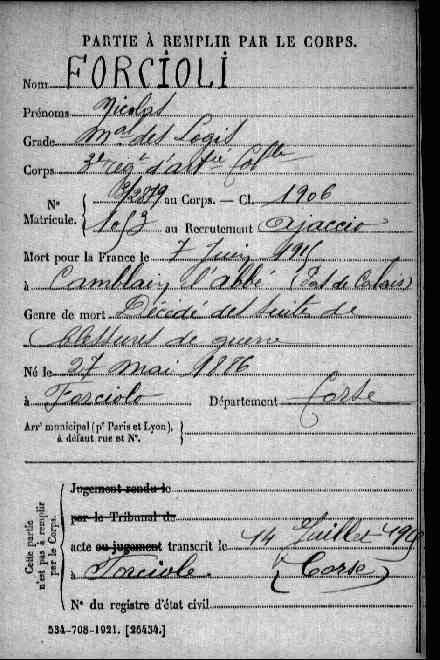 PARTIE À REMPLIR PAR LE CORPS.
Nom FORCIOLI
Prénoms Nicolas
Grade Mal des Logis
Corps 3e Régt d'artie Colle
N° Matricule. { au Corps. — Cl. 1906
au Recrutement Ajaccio
Mort pour la France le 7 Juin 1915
à Camblain l'abbé (Pas de Calais)
Genre de mort Décédé des suite de
blessures de guerre
Né le 27 mai 1886
à Forciolo Département Corse
Arrt municipal (pr Paris et Lyon), à défaut rue et N°. }
Jugement rendu le
par le Tribunal de
acte ou jugement transcrit le 14 Juillet
à Forciolo. (Corse)
N° du registre d'état civil
Cette partie n'est pas à remplir par le Corps.
534-708-1921. [26434.]